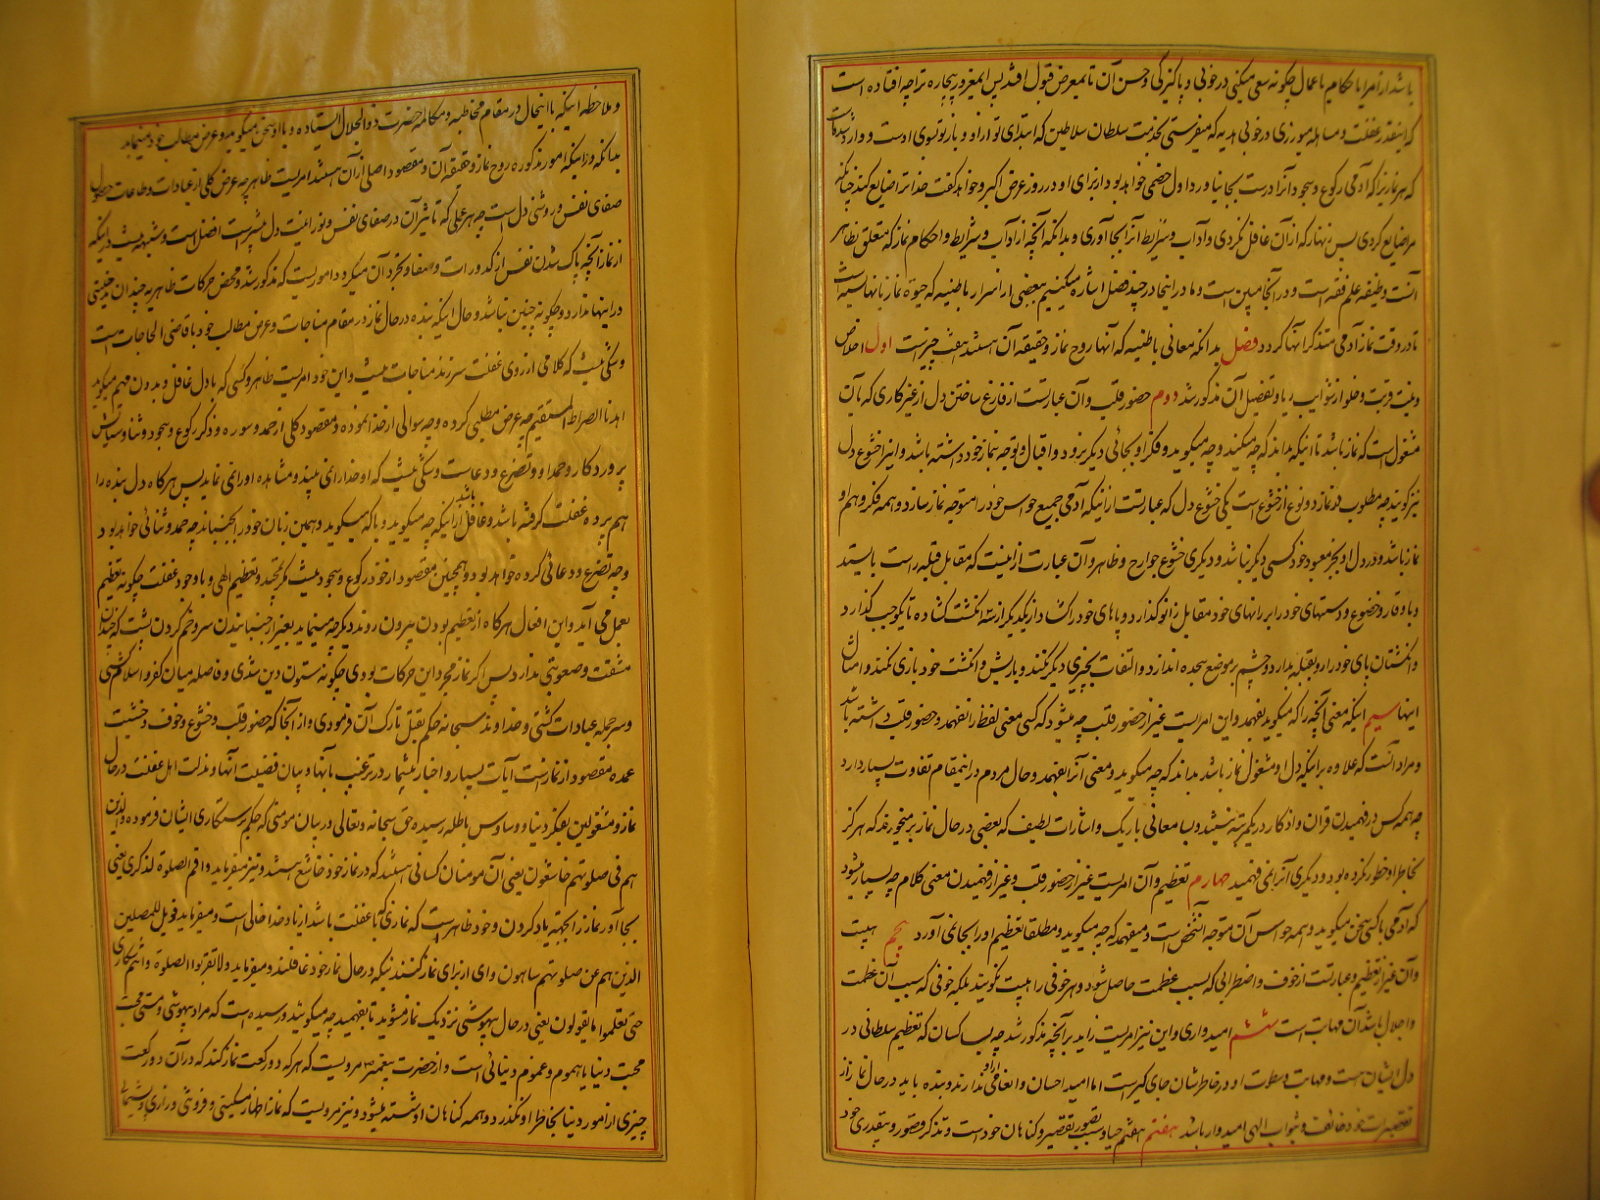 باشد از امر یا حکام یا عمال چگونه سعی میکنی در خوبی و پاکیزگی و حسن آن تا بمعرض قبول افتد پس ای مغرور بیچاره ترا چه افتاده است
که اینقدر غفلت و مساهله میورزی در خوبی هدیه که میفرستی بخدمت سلطان سلاطین که ابتدای تو از او و بازگشت تو بسوی اوست و وارد شده است
که هر نمازیکه آدمی رکوع و سجود آنرا درست بجا نیاورد اول خصمی خواهد بود از برای او در روز عرض اکبر و خواهد گفت خدا ترا ضایع کند چنانکه
مرا ضایع کردی پس زنهار که از آن غافل نگردی و آداب و شرایط آنرا بجا آوری و بدانکه آنچه از آداب و شرایط و احکام نماز که متعلق بظاهر
آنست وظیفه علم فقه است و در آنجا مبین است و ما در اینجا در چند فصل اشاره میکنیم ببعضی از اسرار باطنیه که حیوة نماز بآنها بسته است
تا در وقت نماز آدمی متذکر آنها گردد فصل بدانکه معانی باطنیه که آنها روح نماز و حقیقه آن هستند هفت چیز است اول اخلاص
و نیت قربت و خلو از شوایب ریا و تفصیل آن مذکور شد دوم حضور قلب و آن عبارتست از فارغ ساختن دل از غیر کاری که بآن
مشغول است که نماز باشد تا اینکه بداند که چه میکند و چه میگوید و فکر او بجائی دیگر نرود و اقبال و توجه بنماز خود داشته باشد و اینرا خشوع دل
نیز گویند چه مطلوب در نماز دو نوع از خشوع است یکی خشوع دل که عبارتست از اینکه آدمی جمیع حواس خود را متوجه نماز سازد و همه فکر و هم او
نماز باشد و در دل او بجز معبود خود کسی دیگر نباشد و دیگری خشوع جوارح و ظاهر و آن عبارت از اینست که مقابل قبله راست بایستد
و با وقار و خضوع و دستهای خود را بر رانهای خود مقابل زانو گذارد و پاهای خود را گشاد از یکدیگر از سه انگشت گشاده تا یکوجب گذارد
و انگشتان پای خود را رو بقبله بدارد و چشم بر موضع سجده اندازد و التفات بچیزی دیگر نکند و با ریش و انگشت خود بازی نکند و امثال
اینها سیم اینکه معنی آنچه را که میگوید بفهمد و این امریست غیر از حضور قلب چه میشود که کسی معنی لفظ را نفهمد و حضور قلب داشته باشد
و مراد آنست که علاوه بر اینکه دل او مشغول نماز باشد بداند که چه میگوید و معنی آنرا بفهمد و حال مردم در اینمقام تفاوت بسیار دارد
چه همه کس در فهمیدن قران و اذکار در یکمرتبه نیستند و بسا معانی باریک و اشارات لطیف که بعضی در حال نماز بر میخورند که هرگز
بخاطر او خطور نکرده بود و دیگری آنرا نمی فهمید چهارم تعظیم و آن امریست غیر از حضور قلب و غیر از فهمیدن معنی کلام چه بسیار میشود
که آدمی با کسی سخن میگوید و همه حواس آن متوجه آنشخص است و میفهمد که چه میگوید و مطلقا تعظیم او را بجا نمی آورد پنجم هیبت
و آن غیر از تعظیم و عبارتست از خوف و اضطرابی که بسبب عظمت حاصل شود و هر خوفی را هیبت نگویند بلکه خوفی که سبب آن عظمت
و اجلال باشد آن مهابت است ششم امیدواری و این نیز امریست زاید بر آنچه مذکور شد چه بسا کسان که تعظیم سلطانی در
دل ایشان هست و مهابت و سطوت او در خاطرشان جای گیر است اما امید احسان و انعامی از او ندارند و بنده باید در حال نماز از
تقصیرات خود خائف و بثواب الهی امیدوار باشد هفتم حیا و سبب تصور تقصیر و گناهان خود است و تذکر قصور و بیقدری خود
و ملاحظه اینکه با اینحال در مقام مخاطبه و مکالمه حضرت ذوالجلال ایستاده و با او سخن میگوید و عرض مطالب خود مینماید
بدانکه در اینکه امور مذکوره روح نماز و حقیقه آن و مقصود اصلی از آن هستند امریست ظاهر چه غرض کلی از عبادات و طاعات حصول
صفای نفس و روشنی دل است چه هر عملی که تاثیر آن در صفای نفس و نورانیت دل بیشتر است افضل است و شبهه نیست در اینکه
از نماز آنچه پاک شدن نفس از کدورات و صفا و تجرد آن میگردد امور یست که مذکور شد و محض حرکات ظاهریه چندان مدخلیتی
در اینها ندارد و چگونه چنین نباشد و حال اینکه بنده در حال نماز در مقام مناجات و عرض مطالب خود با قاضی الحاجات است
و شکی نیست که کلامی از روی غفلت سر زند مناجات نیست و این خود امریست ظاهر و کسی که با دل غافل و بدون فهم میگوید
اهدنا الصراط المستقیم چه عرض مطلبی کرده و چه سوالی از خدا نموده و مقصود کلی از حمد و سوره و ذکر رکوع و سجود و ثنا و ستایش
پروردگار و حمد او و تضرع و دعاست و شکی نیست که او خدا را نمی بیند و مشاهده او را نمی نماید پس هرگاه دل بنده را
هم پرده غفلت گرفته باشد و غافل باشد از اینکه چه میگوید و با که میگوید و همین زبان خود را بجنباند چه حمد و ثنائی خواهد بود
و چه تضرع و دعائی کرده خواهد بود و همچنین مقصود از خود رکوع و سجود نیست مگر تمجید و تعظیم الهی و با وجود غفلت چگونه تعظیم
بعمل می آید و این افعال هرگاه از تعظیم بودن بیرون روند دیگر چه میماند بغیر از جنبانیدن سر و خم کردن پشت که چندان
مشقت و صعوبتی ندارد پس اگر نماز بمجرد این حرکات بودی چگونه ستون دین شدی و فاصله میان کفر و اسلام گشتی
و سر جمله عبادات گشتی و خداوند سبحانه حکم بقتل تارک آن فرمودی و از آنجا که حضور قلب و خشوع و خوف و خشیت
عمده مقصود از نماز است آیات بسیار و اخبار بیشمار در ترغیب بآنها و بیان فضیلت آنها و مذلت اهل غفلت در حال
نماز و مشغولین بفکر دنیا و وساوس باطله رسیده حق سبحانه و تعالی در بیان مومنی که حکم برستگاری ایشان فرموده والذین
هم فی صلوتهم خاشعون یعنی آن مومنان کسانی هستند که در نماز خود خاشع هستند و نیز میفرماید و اقم الصلوة لذکری یعنی
بجا آور نماز را بجهة یاد کردن و خود ظاهر است که نمازی که با غفلت باشد از یاد خدا خالی است و میفرماید فویل للمصلین
الذین هم عن صلوتهم ساهون وای از برای نماز کنندگانیکه در حال نماز خود غافلند و میفرماید ولا تقربوا الصلوة و انتم سکاری
حتی تعلموا ما تقولون یعنی در حال بیهوشی نزدیک نماز مشوید تا بفهمید چه میگوئید و رسیده است که مراد بیهوشی و مستی محبت
محبت دنیا یا هموم و غموم دنیائی است و از حضرت پیغمبر ص مرویست که هر که دو رکعت نماز کند که در آن دو رکعت
چیزی از امور دنیا بخاطر او نگذرد همه گناهان او شسته میشود و نیز مرویست که نماز اظهار مسکینی و فروتنی و زاری و پشیمانی